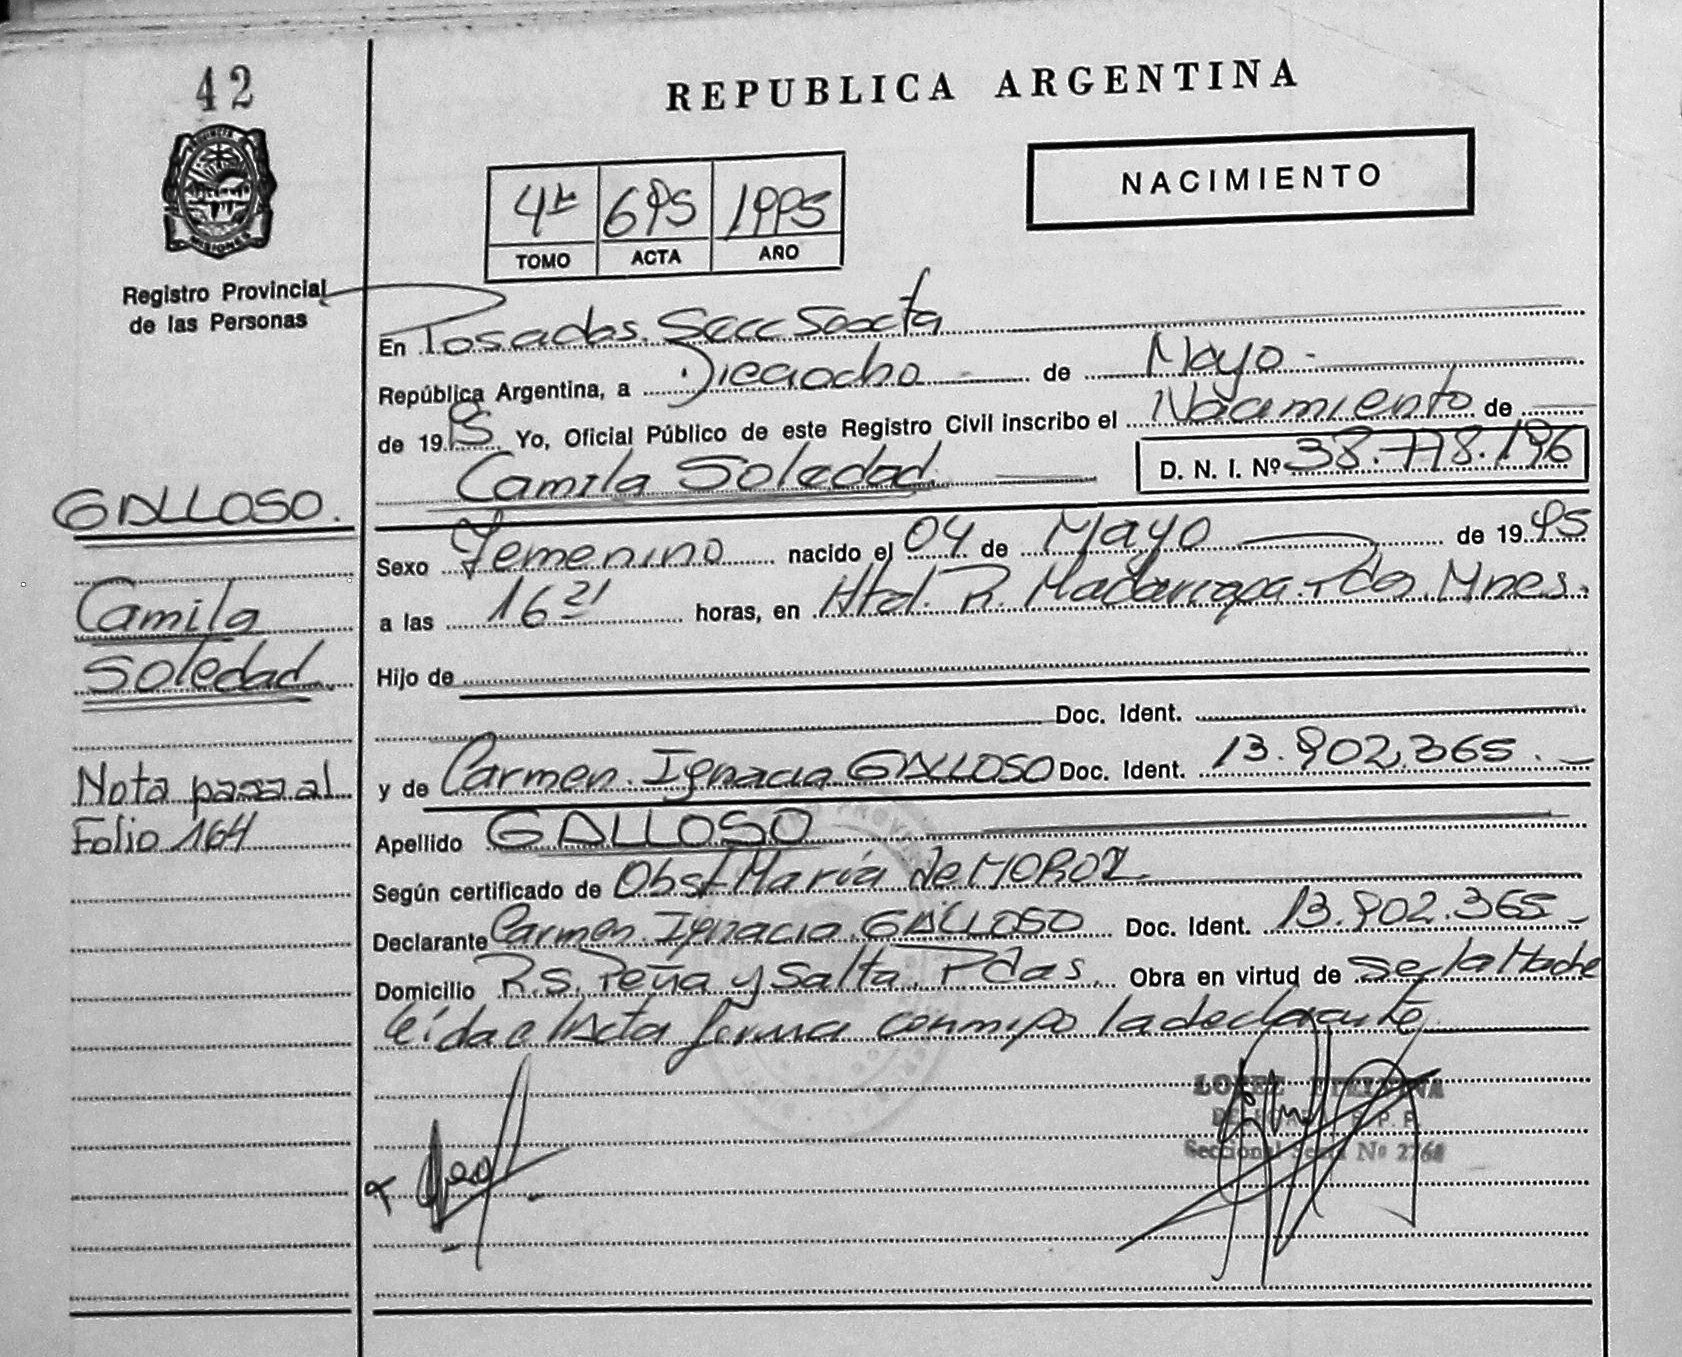 42
PROVINCIA
MISIONES
Registro Provincial
de las Personas
REPUBLICA ARGENTINA
NACIMIENTO
4º 695 1995
TOMO ACTA AÑO
En Posadas. Secc Sexta
República Argentina, a Dieciocho de Mayo.
de 1995 Yo, Oficial Público de este Registro Civil inscribo el Nacimiento de
Camila Soledad. D. N. I. Nº 38.778.196
GALLOSO.
Camila
Soledad.
Nota pasa al
Folio 164
Sexo Femenino nacido el 04 de Mayo de 1995
a las 16 21 horas, en Htal. R. Madariaga. Pdas. Mnes.
Hijo de
Doc. Ident.
y de Carmen. Ignacia. GALLOSO Doc. Ident. 13.902.365.
Apellido GALLOSO
Según certificado de Obst María de MOROZ
Declarante Carmen. Ignacia. GALLOSO Doc. Ident. 13.902.365
Domicilio R.S. Peña y Salta. Pdas. Obra en virtud de ser la Madre
leída el Acta firma conmigo la declarante
LOPEZ
Seccional Sexta Nº 2768